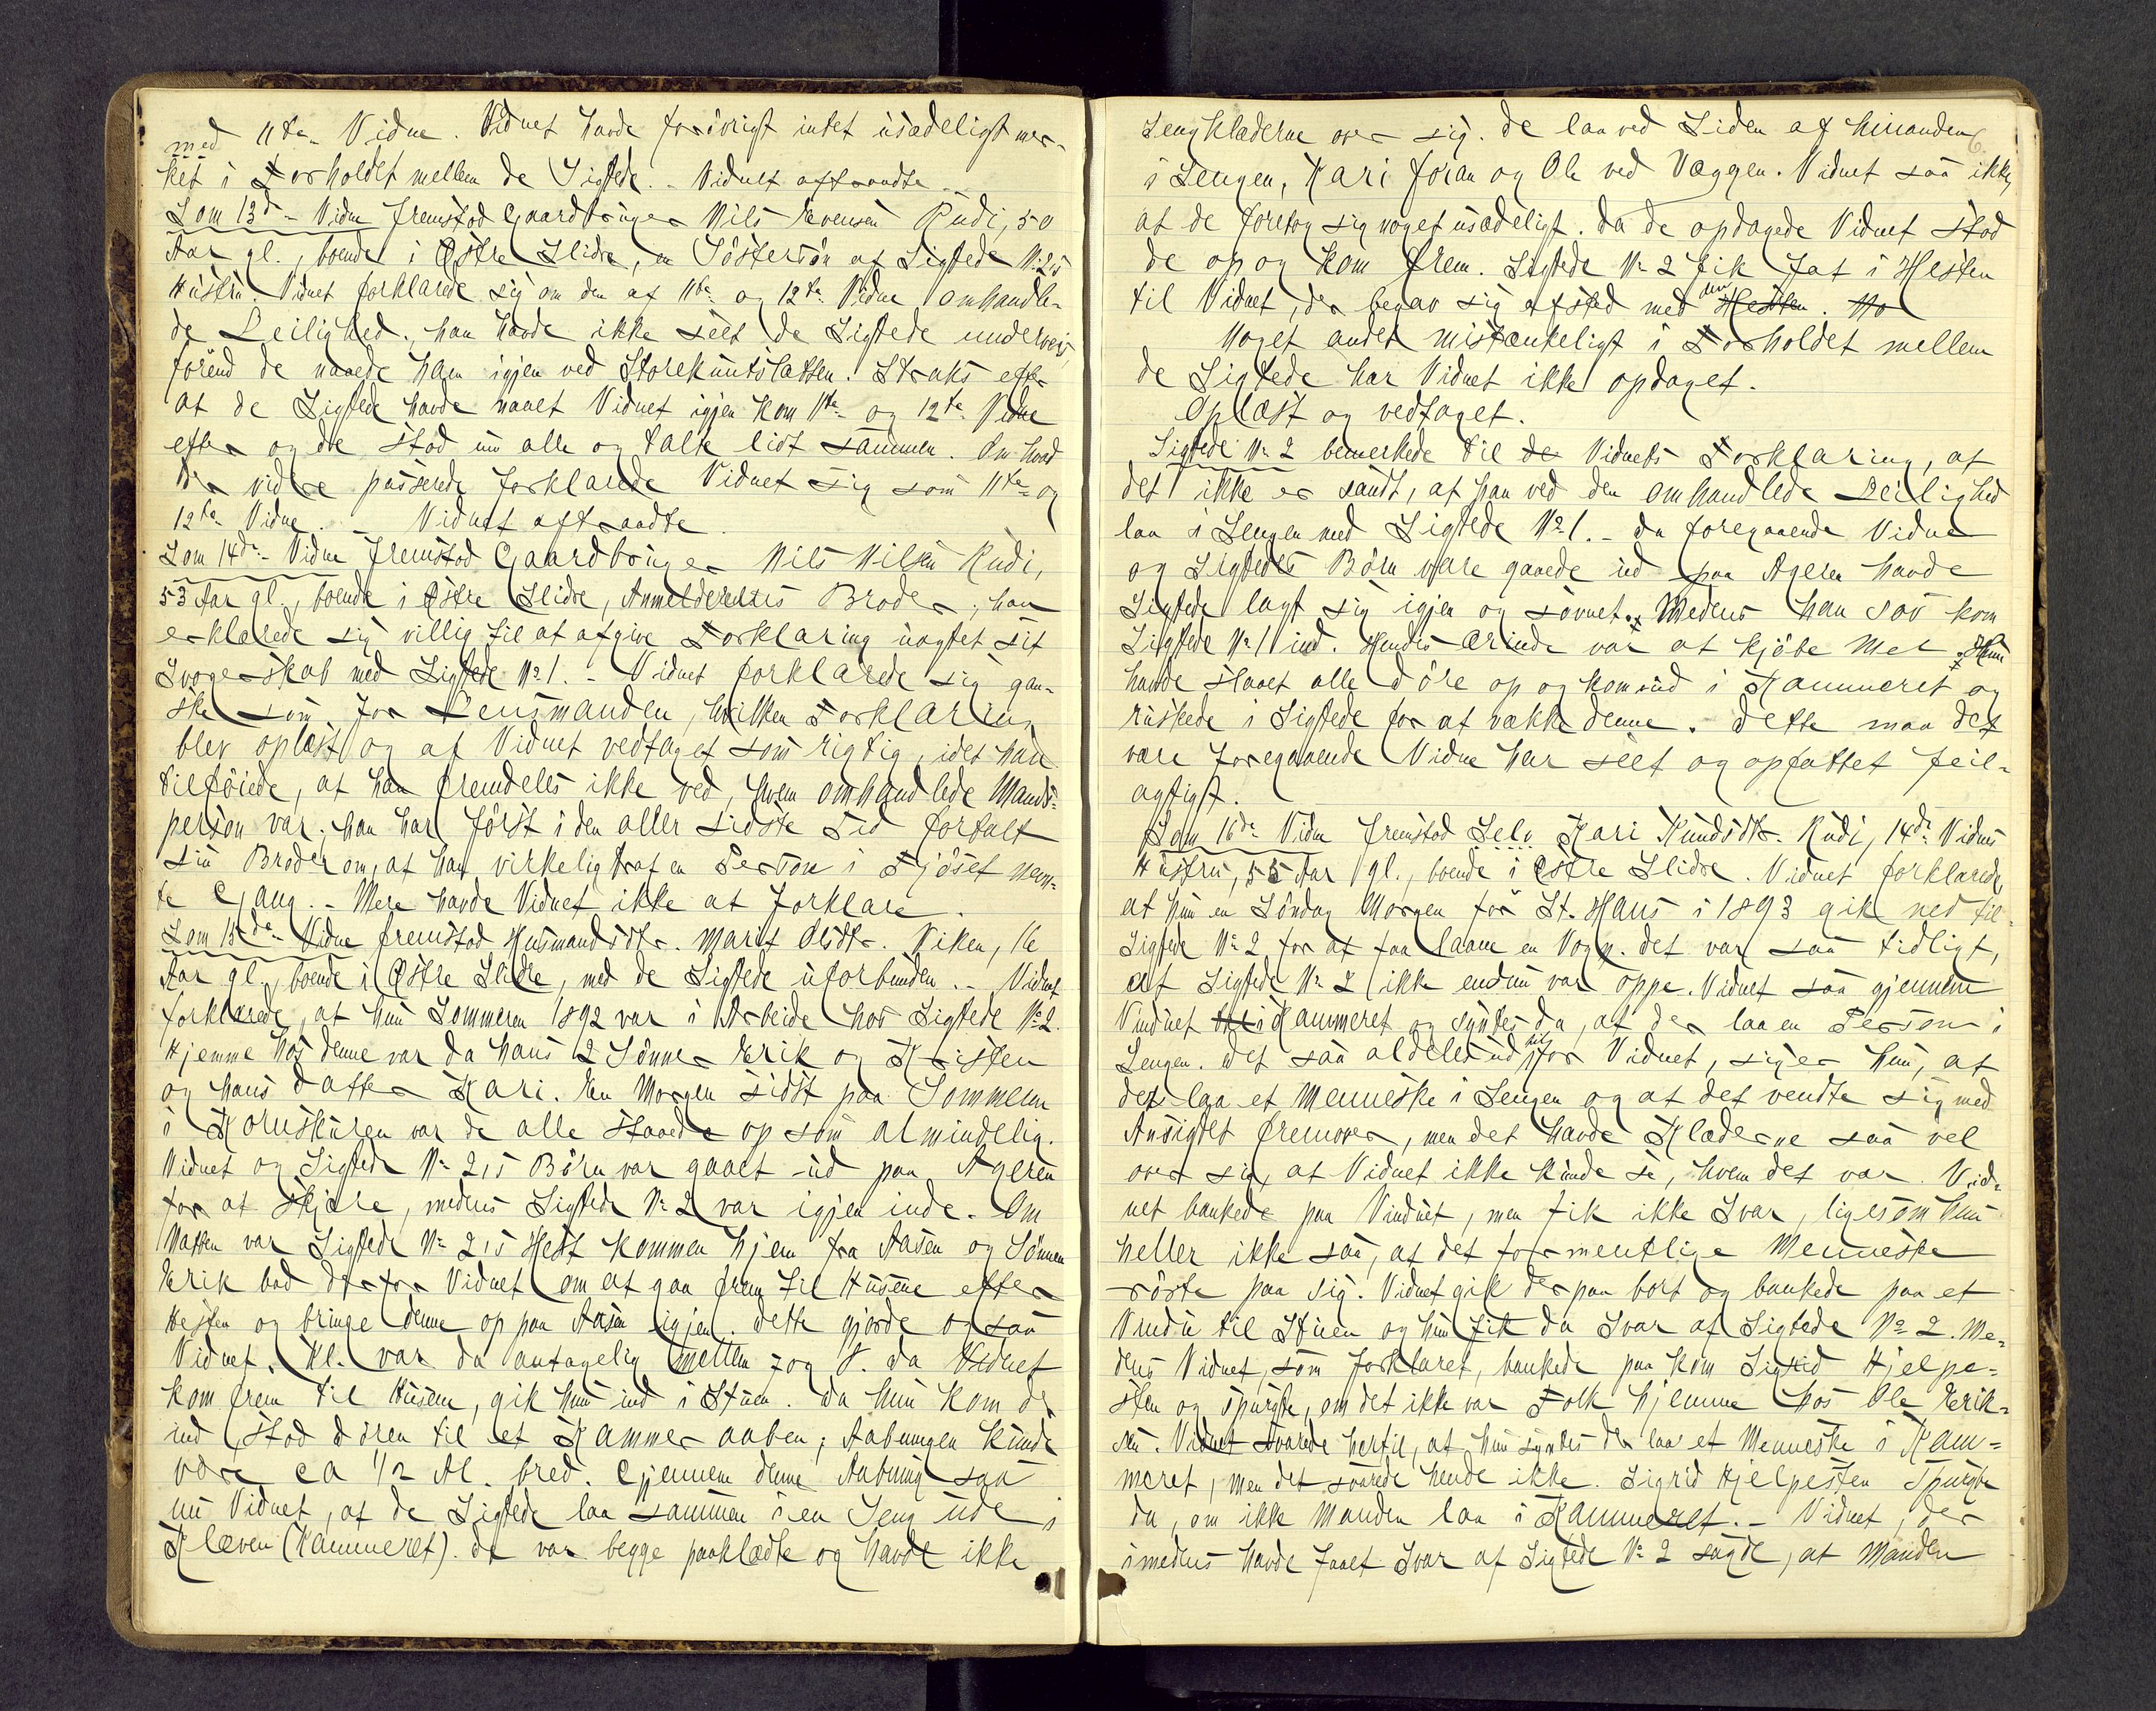 med 11te Vidne. Vidnet havde forøvrigt intet usædeligt mær-
ket i Forholdet mellem de Sigtede. - Vidnet aftraadte. -
Som 13de Vidne fremstod Gaardbruger Nils Evensen Rudi, 50
Aar gl., boende i Østre Slidre, en Søstersøn af Sigtede No 2's
Hustru. Vidnet forklarede sig om den af 11te og 12te Vidne omhandle-
de Leilighed. han havde ikke seet de Sigtede underveis
førend de naaede ham igjen ved Storeknutslatten. Straks efter
at de Sigtede havde naaet Vidnet igjen kom 11te og 12te Vidne
efter og de stod nu alle og talte lidt sammen. Om hvad
der videre passerede forklarede Vidnet sig som 11te og
12te Vidne. - Vidnet aftraadte.
Som 14de Vidne fremstod Gaardbruger Nils Nilsen Rudi,
53 Aar gl., boende i Østre Slidre, Anmelderens Broder; han
erklærede sig villig til at afgive Forklaring uagtet sit
Svogerskab med Sigtede No 1. - Vidnet forklarede sig gan-
ske som for Lensmanden, hvilken Forklaring
blev oplæst og af Vidnet vedtaget som rigtig, idet han
tilføiede, at han fremdeles ikke ved, hvem omhandlede Mands-
person var; han har først i den aller sidste Tid fortalt
sin Broder om, at han virkelig traf en Person i Fjøset nævn-
te Gang. - Mere havde Vidnet ikke at forklare.
Som 15de Vidne fremstod Husmandsdtr. Marit Olsdtr. Viken, 16
Aar gl., boende i Østre Slidre, med de Sigtede uforbunden. - Vidnet
forklarede, at hun Sommeren 1892 var i Arbeide hos Sigtede No 2.
Hjemme hos denne var da hans 2 Sønner Erik og Kristen
og hans Datter Kari. En Morgen sidst paa Sommeren
i Kornskuren var de alle staaede op som almindelig.
Vidnet og Sigtede No 2's Børn var gaaet ud paa Ageren
for at skjære, medens Sigtede No 2 var igjen inde. Om
Natten var Sigtede No 2's Hest kommen hjem fra Aasen og Sønnen
Erik bad derfor Vidnet om at gaa frem til Husene efter
Hesten og bringe denne op paa Aasen igjen. dette gjorde ogsaa
Vidnet. Kl. var da antagelig mellem 7 og 8. Da Vidnet
kom frem til Husene, gik hun ind i Stuen. Da hun kom der
ind stod døren til et Kammer aaben; Aabningen kunde
være ca 1/2 Al. bred. Gjennem denne Aabning saa
nu Vidnet, at de Sigtede laa sammen i en Seng ude i
Kleven (Kammeret). de var begge paaklædte og havde ikke
Sengklæderne over sig. de laa ved Siden af hinanden
i Sengen, Kari foran og Ole ved Væggen. Vidnet saa ikke
at de foretog sig noget usædeligt. Da de opdagede Vidnet stod
de op og kom frem. Sigtede No 2 fik fat i Hesten
til Vidnet, der begav sig afsted med den Hesten. No
Noget andet mistænkeligt i Forholdet mellem
de Sigtede har Vidnet ikke opdaget.
Oplæst og vedtaget.
Sigtede No 2 bemerkede til de Vidnets Forklaring, at
det ikke er sandt, at han ved den omhandlede Leilighed
laa i Sengen med Sigtede No 1. - da foregaaende Vidne
og Sigtedes Børn vare gaaede ud paa Ageren havde
Sigtede lagt sig igjen og sovnet. Medens han sov kom
Sigtede No 1 ind. Hendes Ærinde var at kjøbe Mel. Hun
havde slaaet alle døre op og kom ind i Kammeret og
ruskede i Sigtede for at vække denne. dette maa det
være foregaaende Vidne har seet og opfattet feil-
agtigt.
Som 16de Vidne fremstod Selv. Kari Knudsdtr. Rudi, 14de Vidnes
Hustru, 55 Aar gl., boende i Østre Slidre. Vidnet forklarede,
at hun en Søndag Morgen før St. Hans i 1893 gik ned til
Sigtede No 2 for at faa laane en Vogn. det var saa tidligt,
at Sigtede No 2 ikke endnu var oppe. Vidnet saa gjennem
Vinduet i Kammeret og syntes da, at der laa en Person i
Sengen. det saa aldeles ud til for Vidnet, siger hun, at
det laa et Menneske i Sengen og at det vendte sig med
Ansigtet fremover, men det havde Klæderne saa vel
over sig, at Vidnet ikke kunde se, hvem det var. Vid-
net bankede paa Vinduet, men fik ikke Svar, ligesom hun
heller ikke saa, at det formentlige Menneske
rørte paa sig. Vidnet gik derpaa bort og bankede paa et
Vindu til Stuen og hun fik da Svar af Sigtede No 2. Me-
dens Vidnet, som forklaret, bankede paa kom Sigrid Hjelpe-
sten og spurgte, om det ikke var Folk hjemme hos Ole Erik-
sen. Vidnet svarede hertil, at hun syntes der laa et Menneske i Kam-
meret, men det svarede hende ikke. Sigrid Hjelpesten spurgte
da, om ikke Manden laa i Kammeret. - Vidnet, der
imedens havde faaet Svar af Sigtede No 2 sagde, at Manden